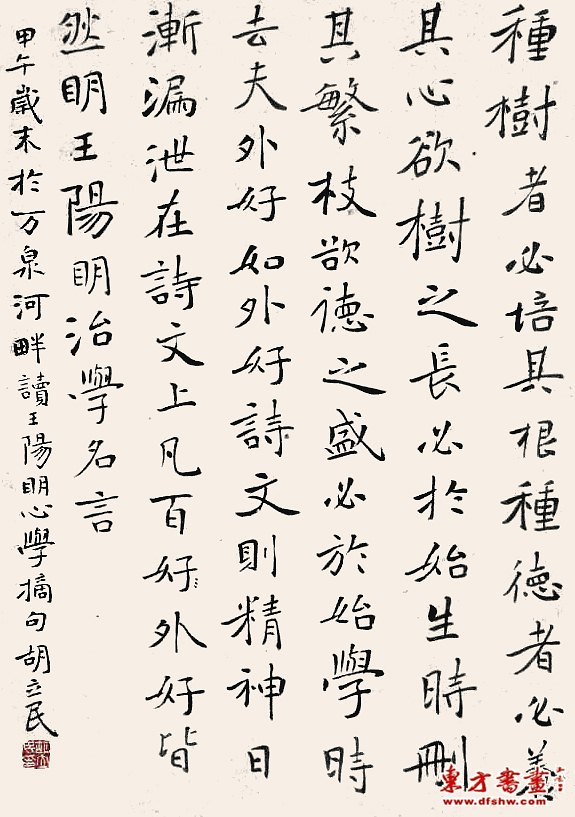 種樹者必培其根種德者必養
其心欲樹之長必於始生時刪
其繁枝欲德之盛必於始學時
去夫外好如外好詩文則精神日
漸漏泄在詩文上凡百好外好皆
然明王陽明治學名言
甲午歲末於万泉河畔讀王陽明心學摘句胡立民
東方書畫
www.dfshw.com